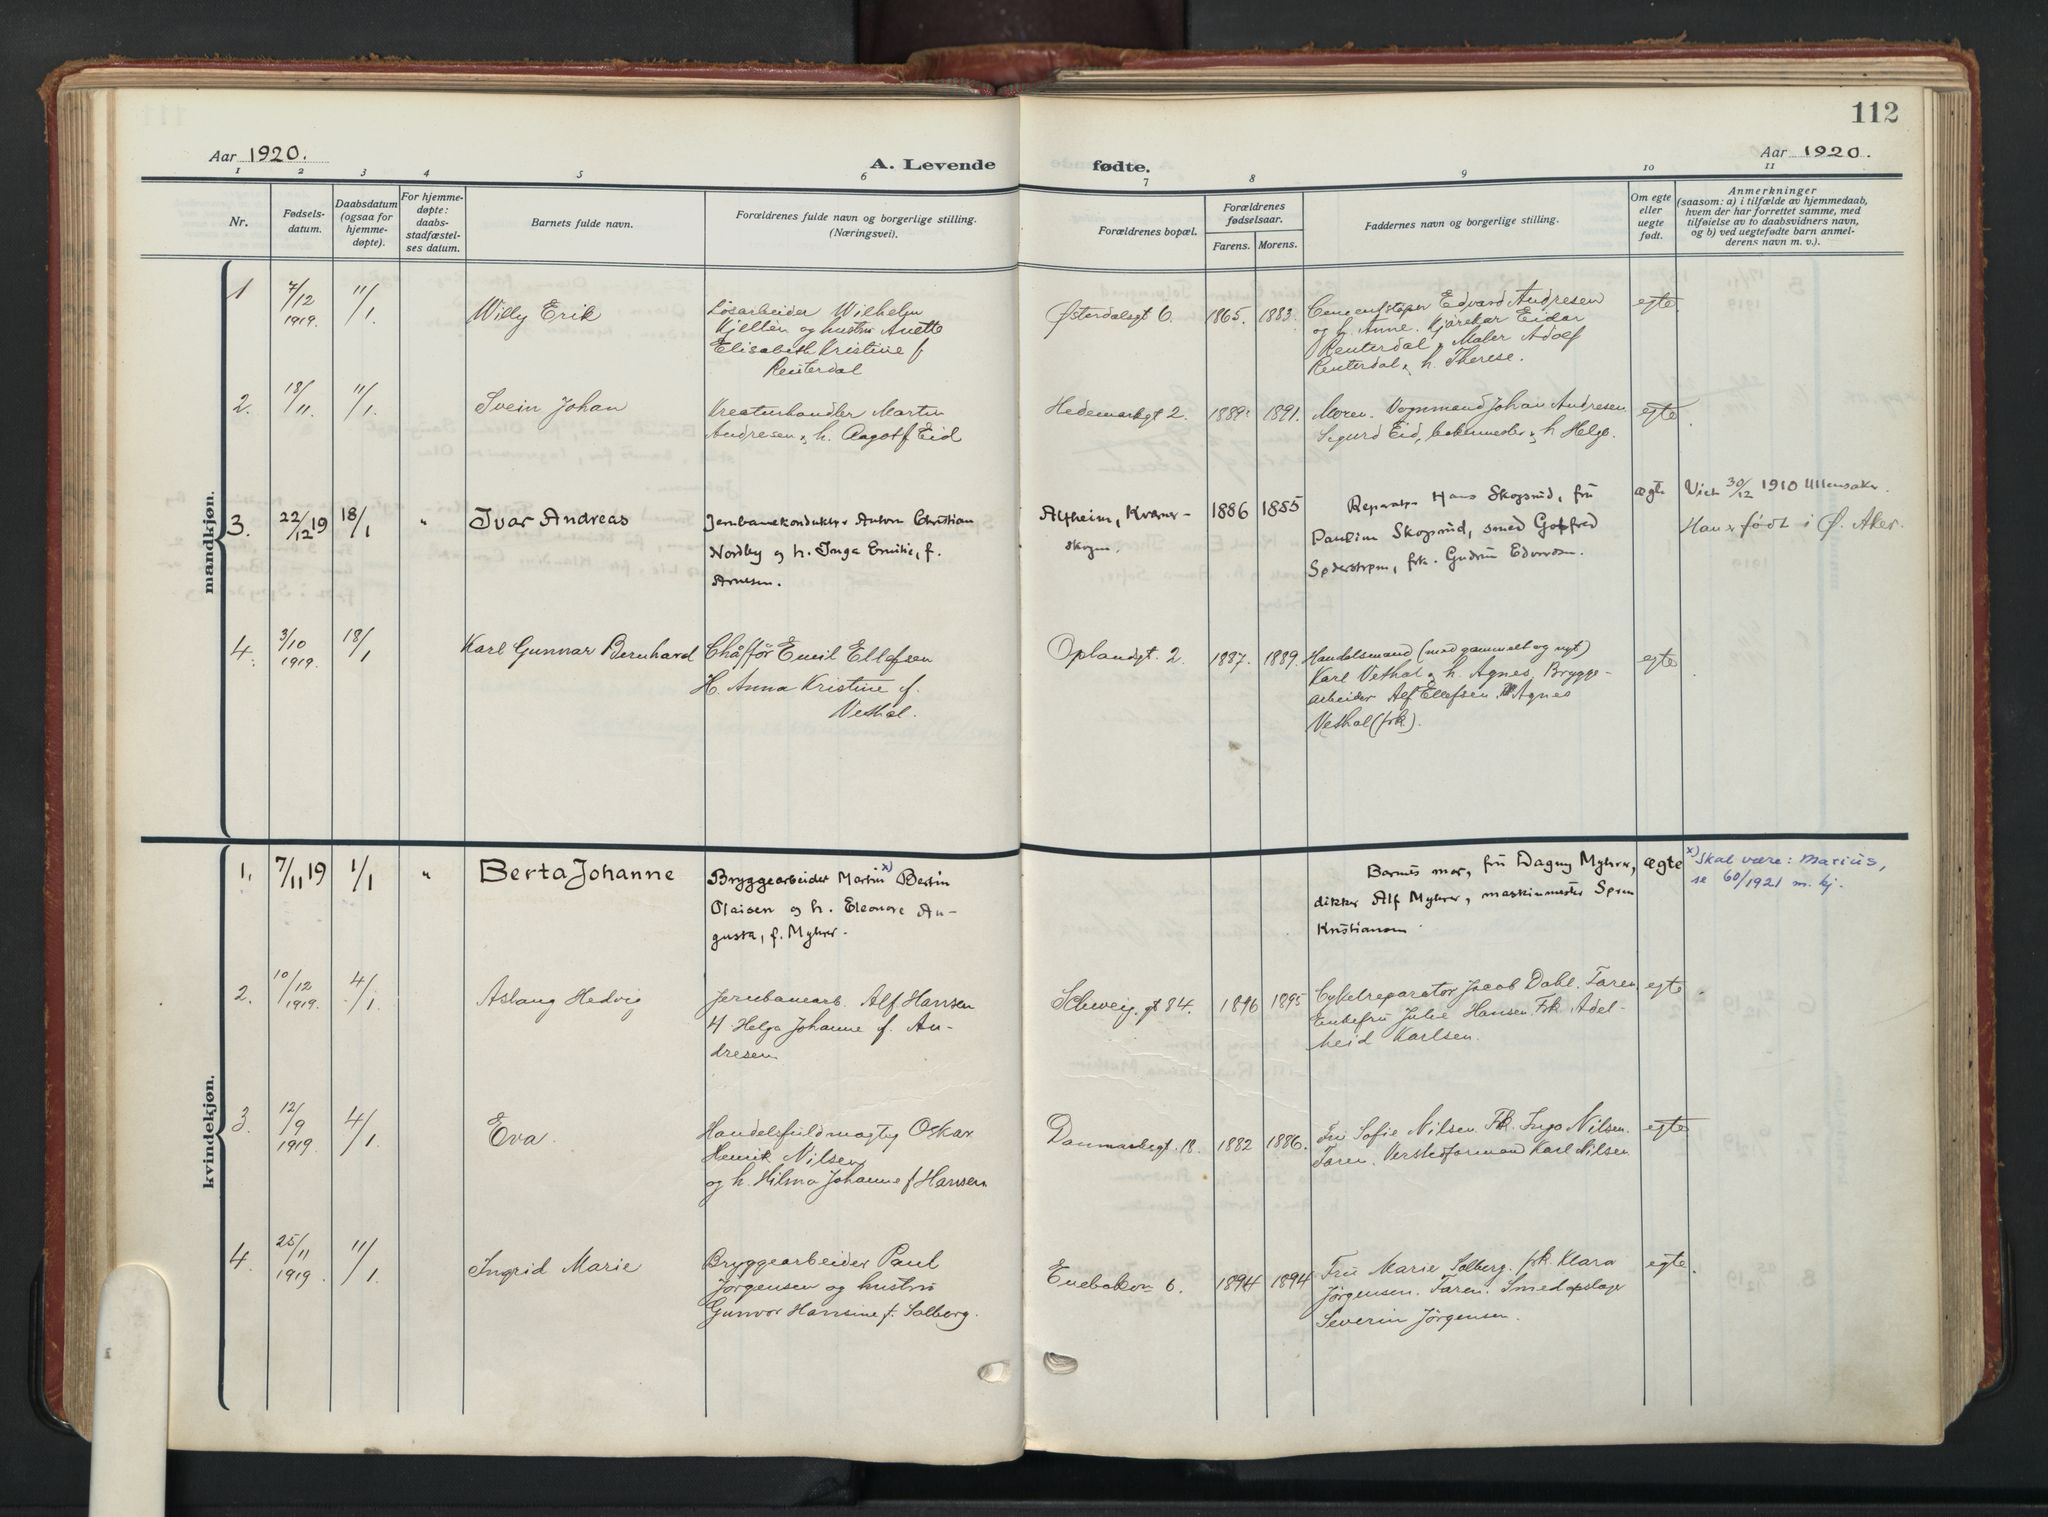 112
Aar 1920.
A. Levende fødte.
Aar 1920.
1 2 3 4 5 6 7 8 9 10 11
Nr.
Fødsels-
datum.
Daabsdatum
(ogsaa for
hjemme-
døpte).
For hjemme-
døpte:
daabs-
stadfæstel-
ses datum.
Barnets fulde navn.
Forældrenes fulde navn og borgerlige stilling.
(Næringsvei).
Forældrenes bopæl.
Forældrenes
fødselsaar.
Farens. Morens.
Faddernes navn og borgerlige stilling.
Om egte
eller
uegte
født.
Anmerkninger
(saasom: a) i tilfælde av hjemmedaab,
hvem der har forrettet samme, med
tilføielse av to daabsvidners navn,
og b) ved uegtefødte barn anmel-
derens navn m. v.).
mandkjøn.
1 7/12 1919. 11/1 Willy Erik
Løsarbeider Wilhelm
Kjellén og hustru Anette
Elisabeth Kristine f
Renterdal
Østerdalsgt 6. 1865. 1883.
Cementstøper Edvard Andresen
og h. Anne. Kjørekar Eidar
Renterdal, Maler Adolf
Renterdal, h. Therese.
egte
2. 18/11. 11/1 Svein Johan
Kreaturhandler Martin
Andresen, h. Aagot f Eid
Hedemarksgt 2. 1889. 1891.
Moren. Vognmand Johan Andresen
Sigurd Eid, bakermester, h Helga.
egte
3. 22/12 19 18/1 " Ivar Andreas
Jernbanekonduktør Anton Christian
Nordby og h. Inga Emilie, f.
Arnesen.
Altheim, Kværner-
skogen. 1886 1885
Reparatør Hans Skogsrud, fru
Pauline Skogsrud, smed Gotfred
Søderstrøm, frk. Gudrun Edvardsen.
ægte
Viet 30/12 1910 Ullensaker.
Han er født i Ø. Aker.
4. 3/10 1919. 18/1 Karl Gunnar Bernhard
Chåffør Emil Ellefsen
H. Anna Kristine f.
Vethal.
Oplandgt. 2. 1887. 1889.
Handelsmand (med gammelt og nyt)
Karl Vethal, h. Agnes, Brygge-
arbeider Alf Ellefsen, Agnes
Vethal (frk).
egte
kvindekjøn.
1. 7/11 19 1/1 " Berta Johanne
Bryggearbeider Martin x) Bertin
Olaisen og h. Eleonore Au-
gusta, f. Myhrer.
Barnets mor, fru Dagny Myhrer,
dikker Alf Myhrer, maskinmester Søren
Kristiansen.
ægte
x) Skal være: Marius,
se 60/1921 m. kj.
2. 10/12 1919. 4/1 Aslaug Hedvig
Jernbanearb. Alf Hansen
H. Helga Johanne f. An-
dresen
Schweig. gt 84. 1896 1895
Cykelreparatør Jacob Dahl. Faren
Enkefru Julie Hansen. Frk Adel-
heid Karlsen.
egte
3. 12/9 1919. 4/1 Eva.
Handelsfuldmægtig Oskar
Henrik Nilsen
og h. Hilma Johanne f Hansen
Danmarksgt. 18. 1882 1886.
Fru Sofie Nilsen. Frk. Inga Nilsen.
Faren. Verksformand Karl Nilsen
egte
4. 25/11 1919. 11/1 Ingrid Marie
Bryggearbeider Paul
Jørgensen og hustru
Gunvor Hansine f. Solberg.
Enebakvn 6. 1894 1894
Fru Marie Solberg. frk. Klara
Jörgensen. Faren. Smed
Severin Jörgensen.
egte.